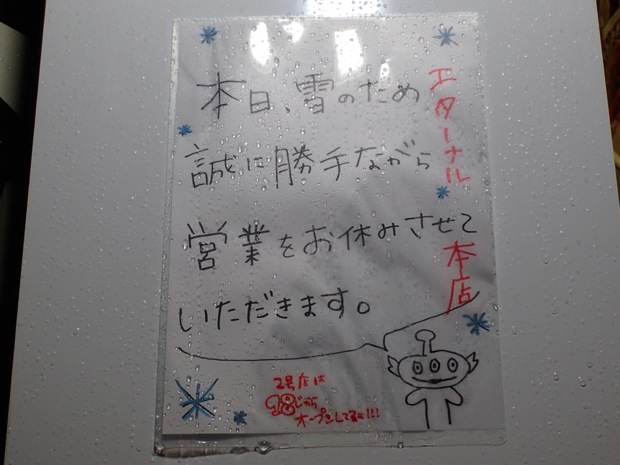 本日、雪のため
誠に勝手ながら
営業をお休みさせて
いただきます。
エターナル
本店
2号店は
18じから
オープンしてるよ!!!